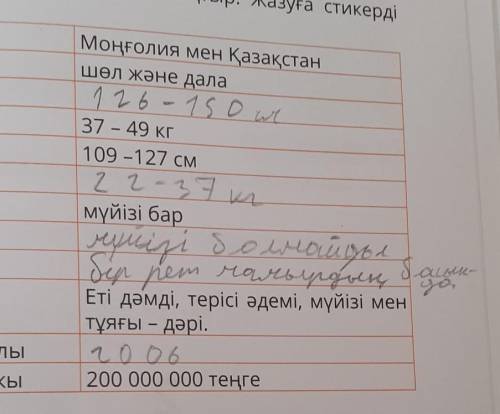 Жазуға стикерді
Моңғолия мен Қазақстан
шөл және дала
126 – 150 см
37 – 49 кг
109 –127 см
22-37 кг
мүйізі бар
мүйізі болмайды
бір рет мамырдың басын-
да
Еті дәмді, терісі әдемі, мүйізі мен
тұяғы – дәрі.
лы 2006
қы 200 000 000 теңге